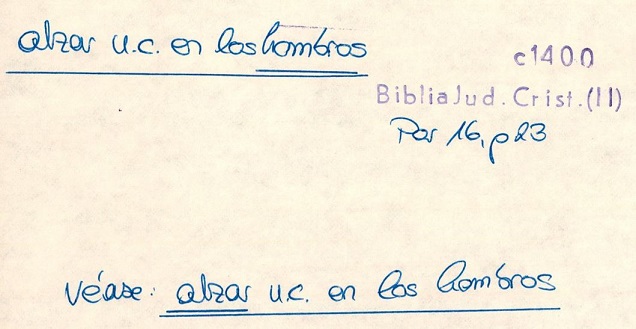 alzar u.c. en los hombros
c1400
BibliaJud.Crist.(II)
Par 16, p 23
Véase: alzar u.c. en los hombros